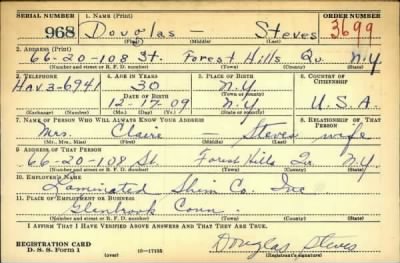 SERIAL NUMBER 1. NAME (Print) ORDER NUMBER
968 Douglas — Steves 3699
(First) (Middle) (Last)
2. ADDRESS (Print)
66-20-108 St. Forest Hills Qu. N.Y.
(Number and street or R. F. D. number) (Town) (County) (State)
3. TELEPHONE 4. AGE IN YEARS 5. PLACE OF BIRTH 6. COUNTRY OF CITIZENSHIP
Hav.3-6941 30 N.Y.
DATE OF BIRTH (Town or county)
12-17-09 N.Y. U.S.A.
(Exchange) (Number) (Mo.) (Day) (Yr.) (State or country)
7. NAME OF PERSON WHO WILL ALWAYS KNOW YOUR ADDRESS 8. RELATIONSHIP OF THAT PERSON
Mrs. Claire — Steves wife
(Mr., Mrs., Miss) (First) (Middle) (Last)
9. ADDRESS OF THAT PERSON
66-20-108 St. Forest Hills Qu. N.Y.
(Number and street or R. F. D. number) (Town) (County) (State)
10. EMPLOYER'S NAME
Laminated Shim Co. Inc
11. PLACE OF EMPLOYMENT OR BUSINESS
Glenbrook Conn
(Number and street or R. F. D. number) (Town) (County) (State)
I AFFIRM THAT I HAVE VERIFIED ABOVE ANSWERS AND THAT THEY ARE TRUE.
REGISTRATION CARD
D. S. S. Form 1 (over) 16—17105 Douglas Steves
(Registrant's signature)